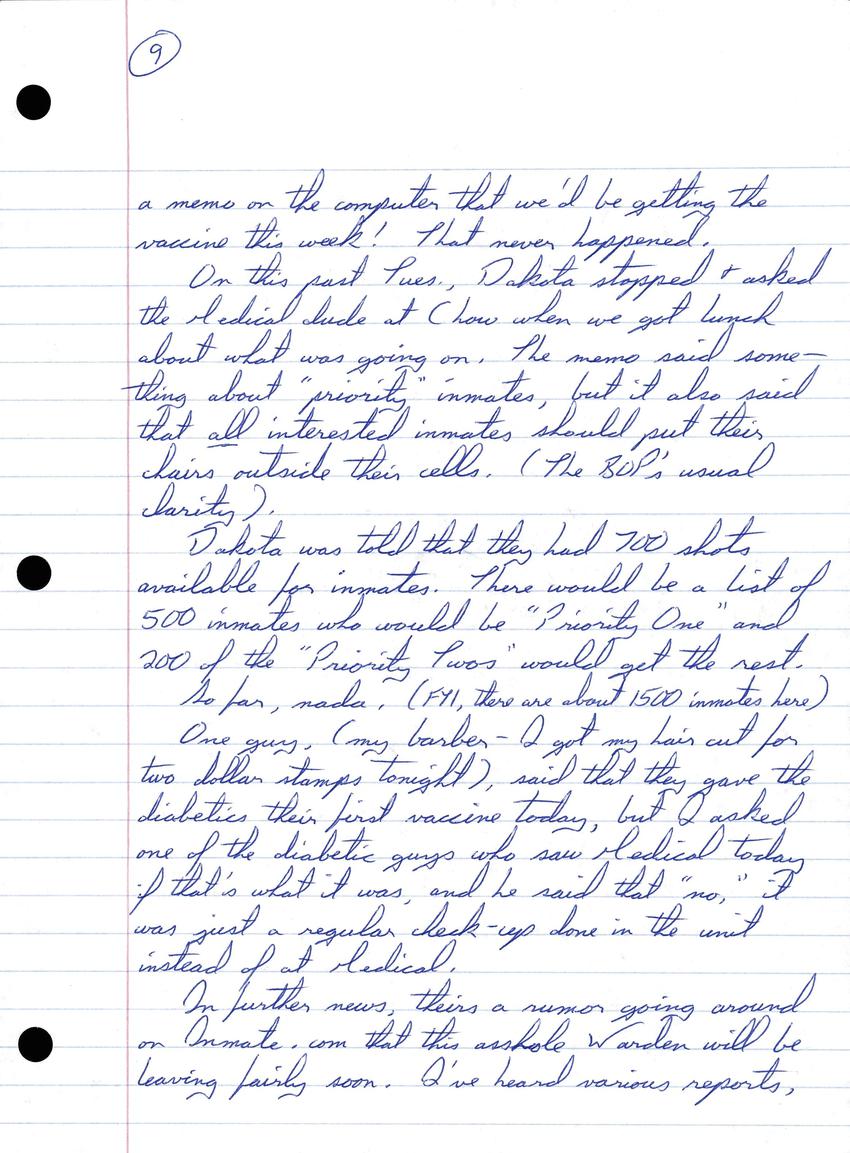 9
a memo on the computer that we'd be getting the
vaccine this week! That never happened.
On this past Tues., Dakota stopped + asked
the Medical dude at Chow when we got lunch
about what was going on. The memo said some-
thing about "priority" inmates, but it also said
that all interested inmates should put their
chairs outside their cells. (The BOP's usual
clarity).
Dakota was told that they had 700 shots
available for inmates. There would be a list of
500 inmates who would be "Priority One" and
200 of the "Priority Twos" would get the rest.
So far, nada. (FYI, there are about 1500 inmates here)
One guy, (my barber - I got my hair cut for
two dollar stamps tonight), said that they gave the
diabetics their first vaccine today, but I asked
one of the diabetic guys who saw Medical today
if that's what it was, and he said that "no," it
was just a regular check-up done in the unit
instead of at Medical.
In further news, theirs a rumor going around
on Inmate.com that this asshole Warden will be
leaving fairly soon. I've heard various reports,